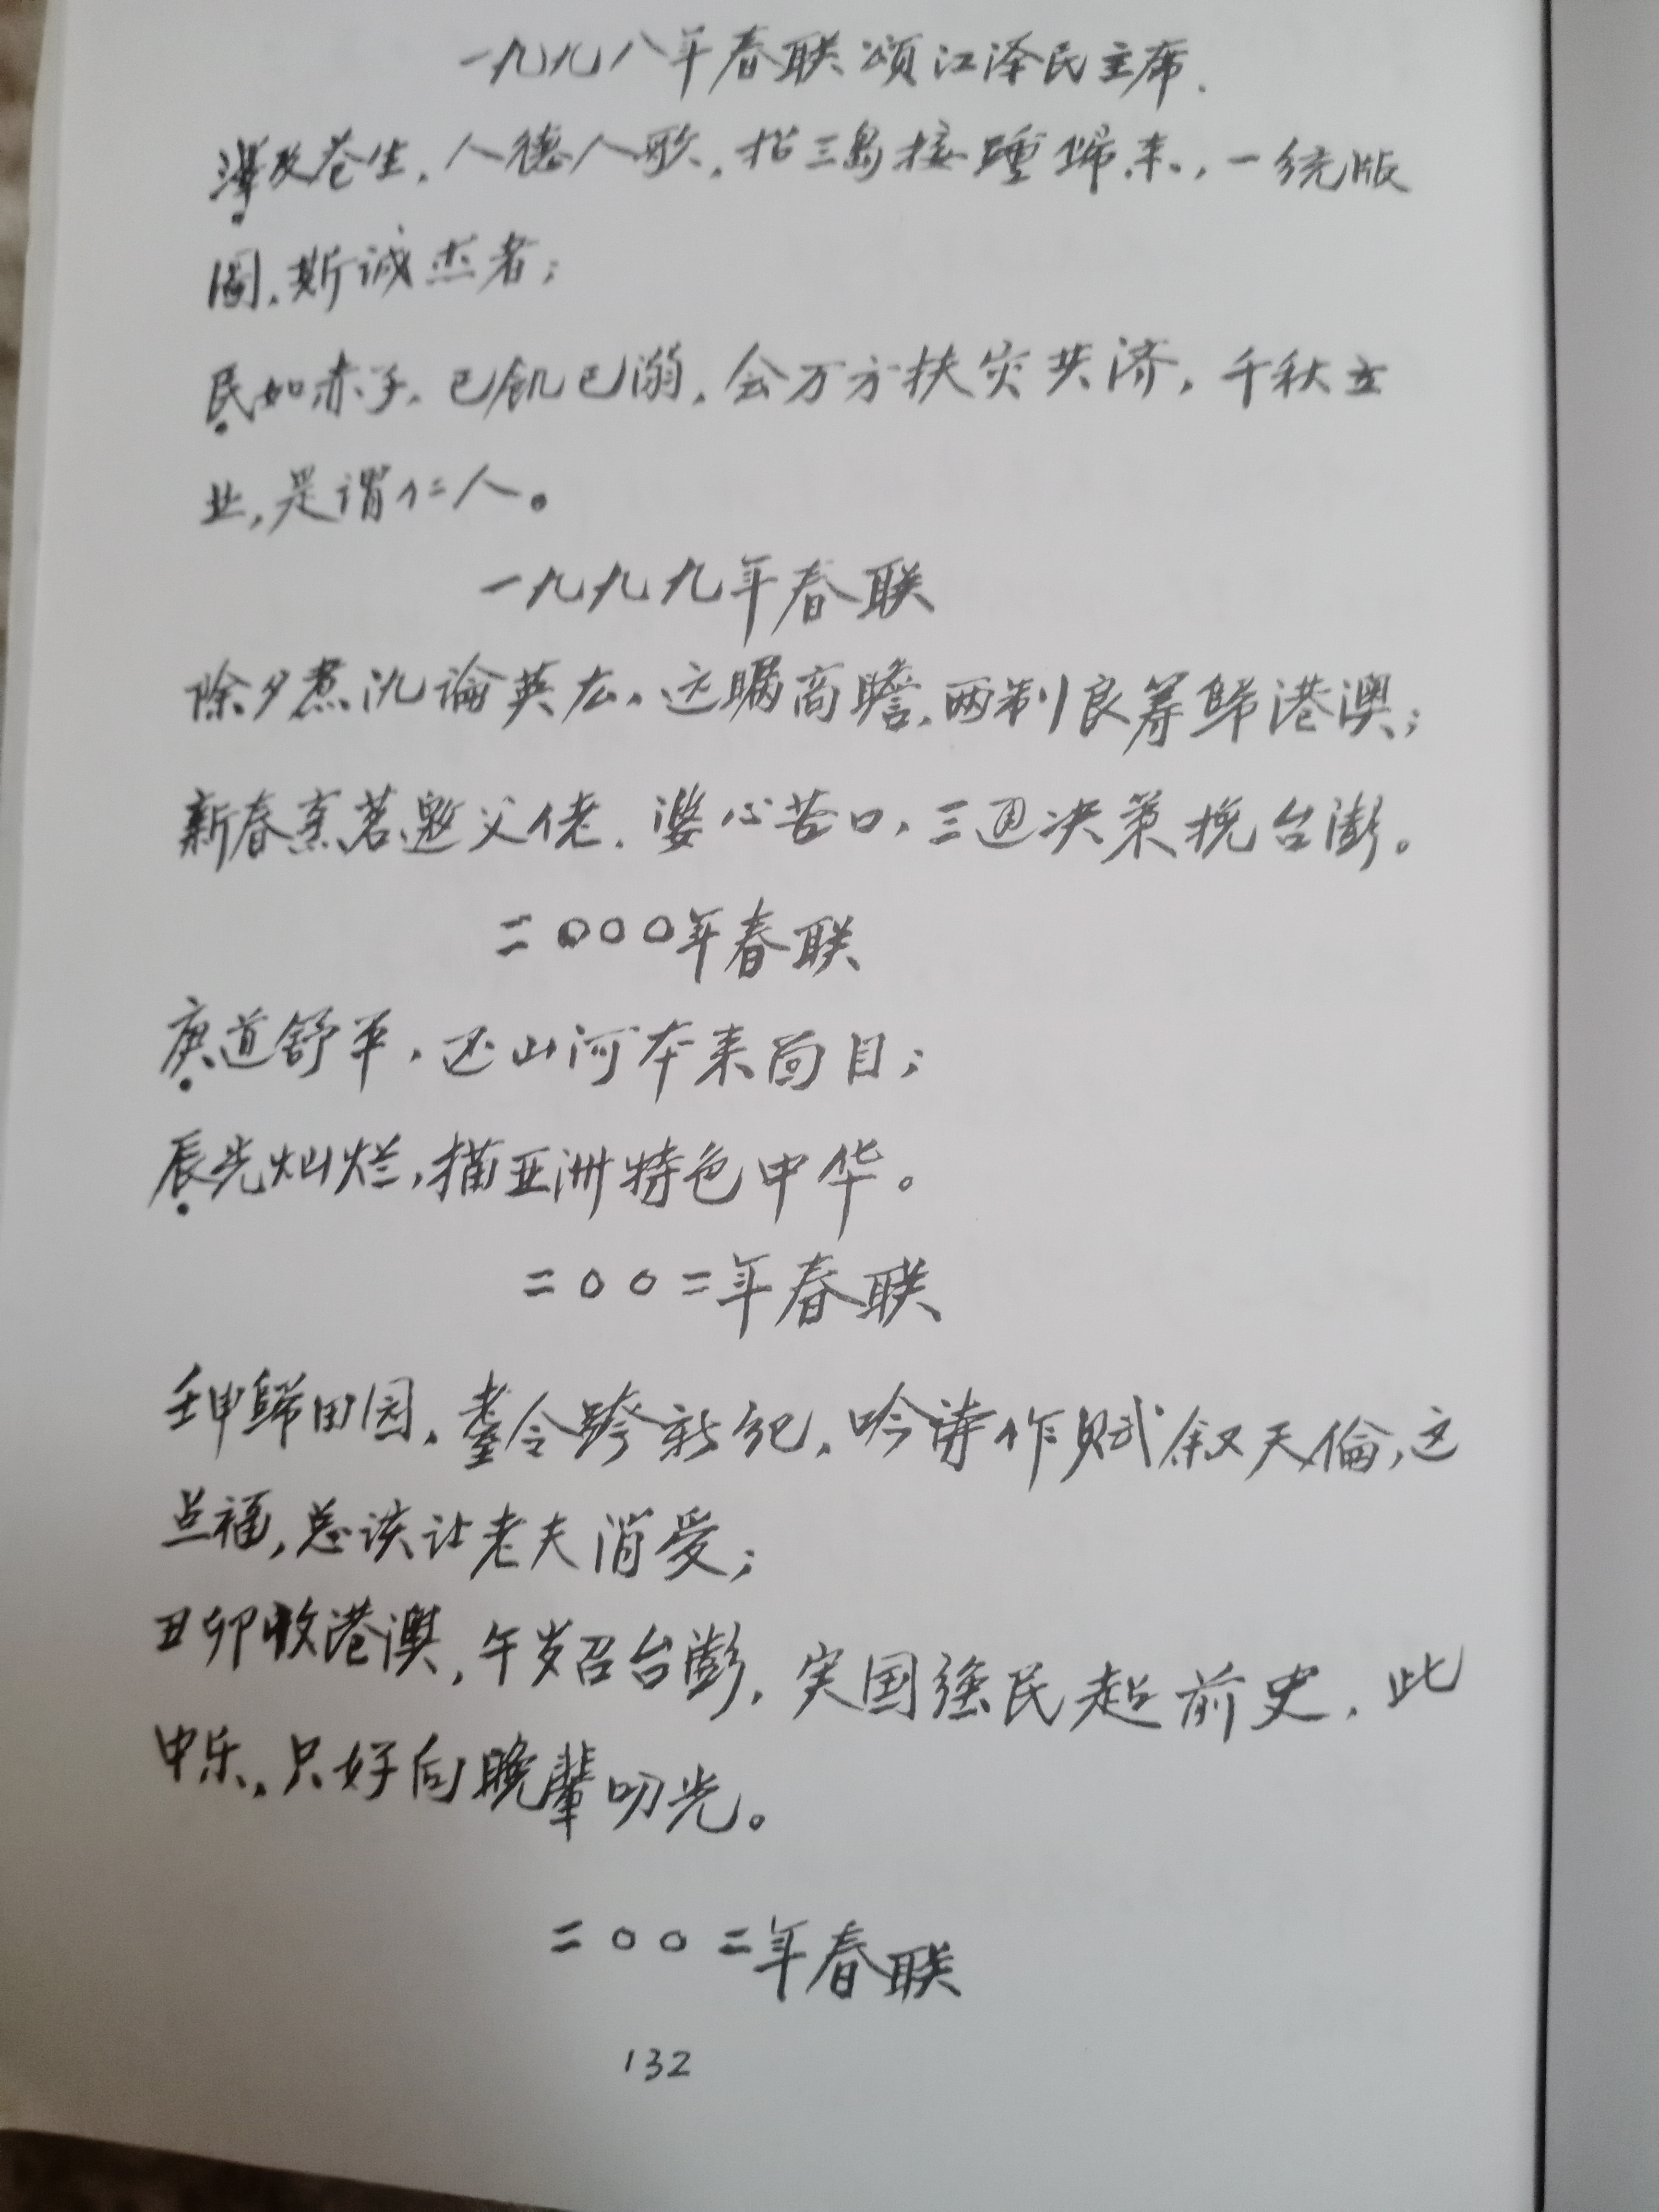 一九九八年春联 颂江泽民主席.
泽及苍生，人德人歌，招三岛接踵歸来，一统版
圖，斯诚杰者；
民如赤子，己飢己溺，会万方扶灾共济，千秋立
业，是谓仁人。
一九九九年春联
除夕煮沈论英左，远瞩高瞻，两制良筹歸港澳；
新春烹茗邀父佬，婆心苦口，三通决策挽台澎。
二〇〇〇年春联
庚道舒平，还山河本来面目；
辰光灿烂，描亚洲特色中华。
二〇〇二年春联
壬申歸田园，耋令跨新纪，吟诗作赋叙天倫，这
点福，总该让老夫消受；
丑卯收港澳，午岁召台澎，实国强民超前史，此
中乐，只好向晚輩叨光。
二〇〇二年春联
132